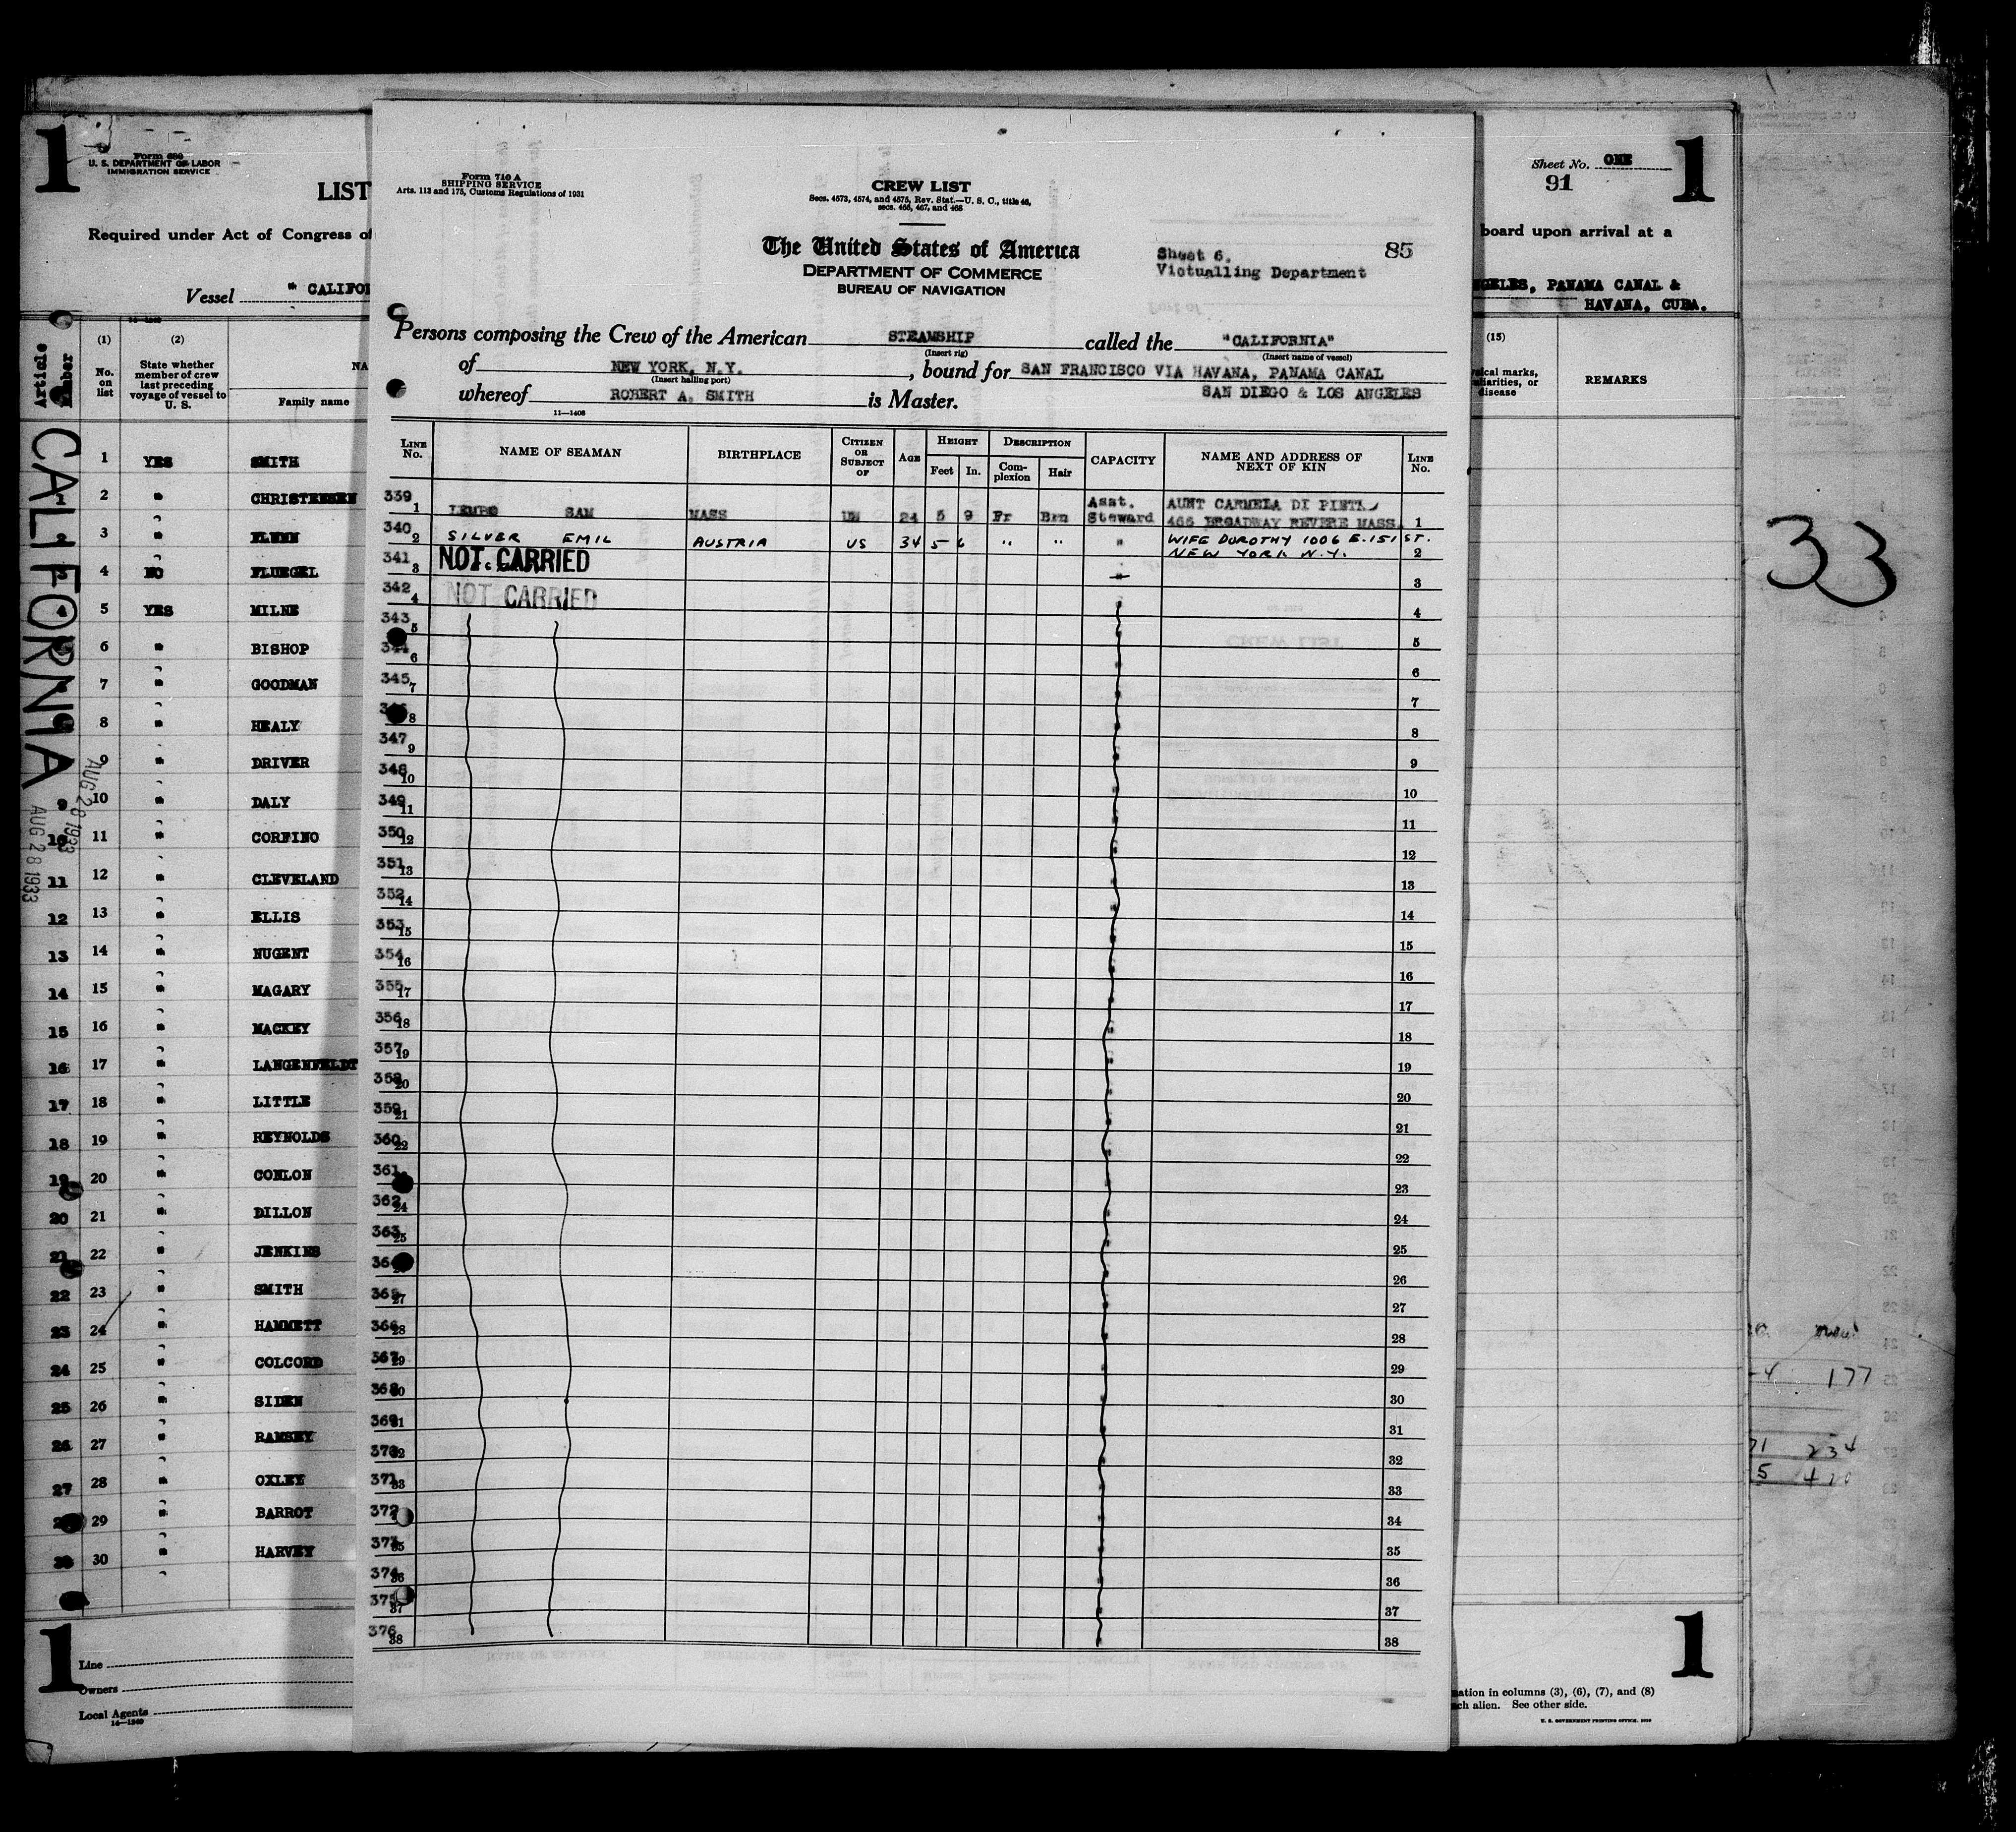 1
Form 680
U. S. DEPARTMENT OF LABOR
IMMIGRATION SERVICE
LIST
Required under Act of Congress of
Vessel " CALIFOR
Article Number
(1)
No. on list
(2)
State whether member of crew last preceding voyage of vessel to U. S.
NA
Family name
CALIFORNIA
AUG 28 1933
AUG 28 1933
1 YES SMITH
1 2 " CHRISTENSEN
2 3 " FLYNN
3 4 NO FLUEGEL
4 5 YES MILNE
6 " BISHOP
7 " GOODMAN
8 " HEALY
9 " DRIVER
9 10 " DALY
10 11 " CORFINO
11 12 " CLEVELAND
12 13 " ELLIS
13 14 " NUGENT
14 15 " MAGARY
15 16 " MACKEY
16 17 " LANGENFELDT
17 18 " LITTLE
18 19 " REYNOLDS
19 20 " CONLON
20 21 " DILLON
21 22 " JENKINS
22 23 " SMITH
23 24 " HAMMETT
24 25 " COLCORD
25 26 " SIDEN
26 27 " RAMSEY
27 28 " OXLEY
29 " BARROT
30 " HARVEY
1
Line
Owners
Local Agents
14—1240
Form 710 A
SHIPPING SERVICE
Arts. 113 and 175, Customs Regulations of 1931
CREW LIST
Secs. 4573, 4574, and 4575, Rev. Stat.—U. S. C., title 46,
secs. 466, 467, and 468
The United States of America
DEPARTMENT OF COMMERCE
BUREAU OF NAVIGATION
Sheet 6.
Victualling Department
85
Persons composing the Crew of the American STEAMSHIP called the "CALIFORNIA"
(Insert rig) (Insert name of vessel)
of NEW YORK, N.Y. , bound for SAN FRANCISCO VIA HAVANA, PANAMA CANAL
(Insert hailing port)
whereof ROBERT A. SMITH is Master. SAN DIEGO & LOS ANGELES
11—1408
LINE No. NAME OF SEAMAN BIRTHPLACE CITIZEN OR SUBJECT OF AGE HEIGHT Feet In. DESCRIPTION Complexion Hair CAPACITY NAME AND ADDRESS OF NEXT OF KIN LINE No.
339 1 LEMBO SAM MASS US 24 5 9 Fr Brn Asst. Steward AUNT CARMELA DI PIET
466 BROADWAY REVERE MASS. 1
340 2 SILVER EMIL AUSTRIA US 34 5 6 " " " WIFE DOROTHY 1006 E. 151 ST.
NEW YORK N.Y. 2
341 3 NOT CARRIED 3
342 4 NOT CARRIED 4
343 5 5
344 6 6
345 7 7
346 8 8
347 9 9
348 10 10
349 11 11
350 12 12
351 13 13
352 14 14
353 15 15
354 16 16
355 17 17
356 18 18
357 19 19
358 20 20
359 21 21
360 22 22
361 23
362 24 24
363 25 25
364 26
365 27 27
366 28 28
367 29 29
368 30 30
369 31 31
370 32 32
371 33 33
372 34
373 35 35
374 36 36
375 37 37
376 38 38
Sheet No. ONE
91
1
board upon arrival at a
GELES, PANAMA CANAL &
HAVANA, CUBA.
(15)
ical marks,
liarities, or
disease
REMARKS
33
177
71 234
5 420
1
ation in columns (3), (6), (7), and (8)
ch alien. See other side.
U. S. GOVERNMENT PRINTING OFFICE